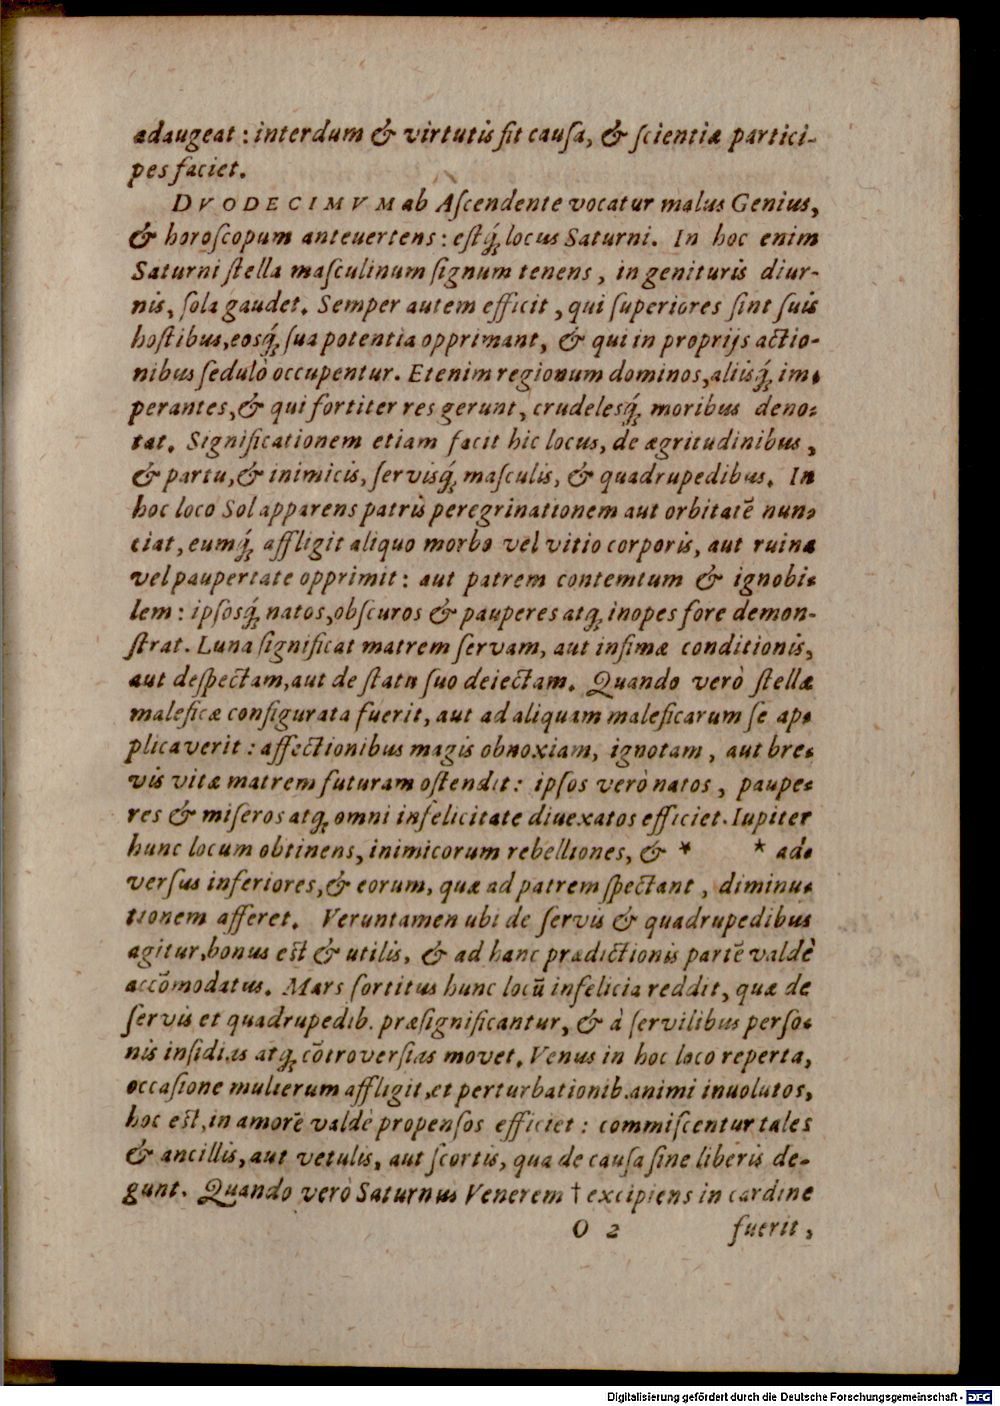 adaugeat : interdum & virtutis fit causa, & scientiæ partici-
pes faciet.
DVODECIMVM ab Ascendente vocatur malus Genius,
& horoscopum anteuertens : estq́; locus Saturni. In hoc enim
Saturni stella masculinum signum tenens, in genituris diur-
nis, sola gaudet. Semper autem efficit, qui superiores sint suis
hostibus, eosq́; sua potentia opprimant, & qui in proprijs actio-
nibus sedulò occupentur. Etenim regionum dominos, aliisq́; im-
perantes, & qui fortiter res gerunt, crudelesq́; moribus deno-
tat. Significationem etiam facit hic locus, de ægritudinibus,
& partu, & inimicis, servisq́; masculis, & quadrupedibus. In
hoc loco Sol apparens patris peregrinationem aut orbitatē nun-
ciat, eumq́; affligit aliquo morbo vel vitio corporis, aut ruina
vel paupertate opprimit : aut patrem contemtum & ignobi-
lem : ipsosq́; natos, obscuros & pauperes atq; inopes fore demon-
strat. Luna significat matrem servam, aut infimæ conditionis,
aut despectam, aut de statu suo deiectam. Quando verò stellæ
maleficæ configurata fuerit, aut ad aliquam maleficarum se ap-
plicaverit : affectionibus magis obnoxiam, ignotam, aut bre-
vis vitæ matrem futuram ostendit : ipsos verò natos, paupe-
res & miseros atq; omni infelicitate divexatos efficiet. Iupiter
hunc locum obtinens, inimicorum rebelliones, & * * ad-
versus inferiores, & eorum, quæ ad patrem spectant, diminu-
tionem afferet. Veruntamen ubi de servis & quadrupedibus
agitur, bonus est & utilis, & ad hanc prædictionis partē valdè
accōmodatus. Mars sortitus hunc locū infelicia reddit, quæ de
servis et quadrupedib. præsignificantur, & à servilibus perso-
nis insidias atq; cōtroversias movet. Venus in hoc loco reperta,
occasione mulierum affligit, et perturbationib. animi inuolutos,
hoc est, in amorē valdè propensos efficiet : commiscentur tales
& ancillis, aut vetulis, aut scortis, qua de causa sine liberis de-
gunt. Quando verò Saturnus Venerem † excipiens in cardine
O 2 fuerit,
Digitalisierung gefördert durch die Deutsche Forschungsgemeinschaft - DFG